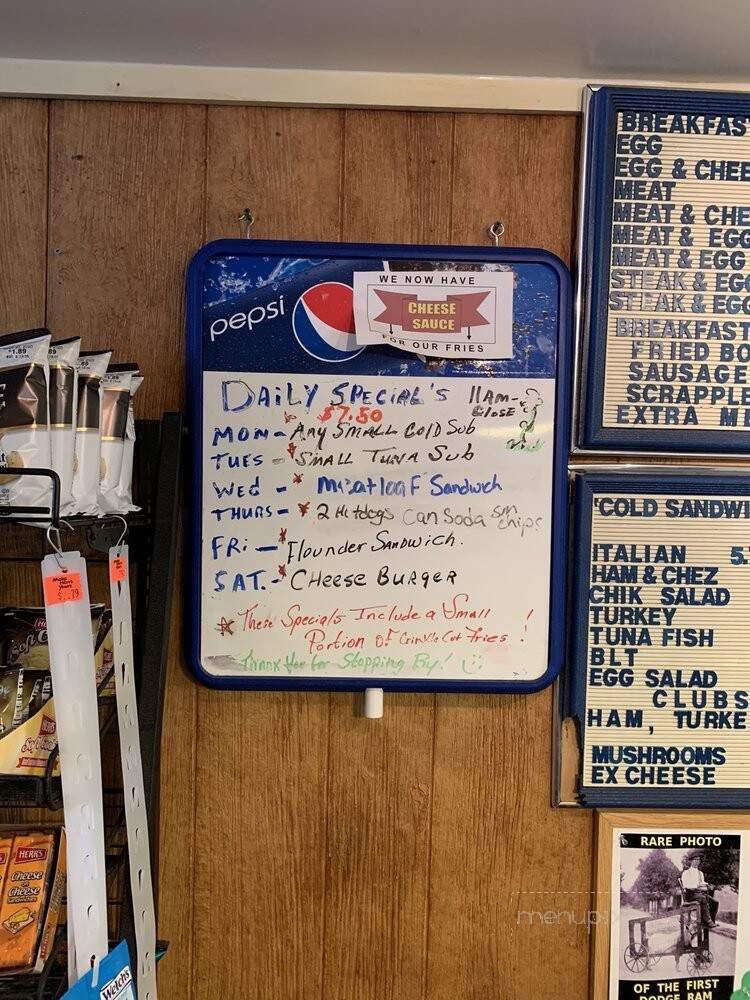 pepsi
WE NOW HAVE
CHEESE
SAUCE
FOR OUR FRIES
DAILY SPECIAL'S 11AM-
CLOSE
$7.50
MON - ANY SMALL COLD SUB
TUES - SMALL TUNA SUB
WED - Meatloaf Sandwich
THURS - 2 Hotdogs Can Soda sm chips
FRI - Flounder Sandwich.
SAT. - CHEESE BURGER
These Specials Include a Small
Portion of Crinkle Cut Fries !
Thank You for Stopping By!
BREAKFAS
EGG
EGG & CHEE
MEAT
MEAT & CHE
MEAT & EGG
MEAT & EGG
STEAK & EGG
STEAK & EGG
BREAKFAST
FRIED BO
SAUSAGE
SCRAPPLE
EXTRA ME
COLD SANDWI
ITALIAN 5.
HAM & CHEZ
CHIK SALAD
TURKEY
TUNA FISH
BLT
EGG SALAD
CLUBS
HAM, TURKE
MUSHROOMS
EX CHEESE
RARE PHOTO
OF THE FIRST
DODGE RAM
$1.89
HERR'S
Cheese
on
Cheese
Welch's